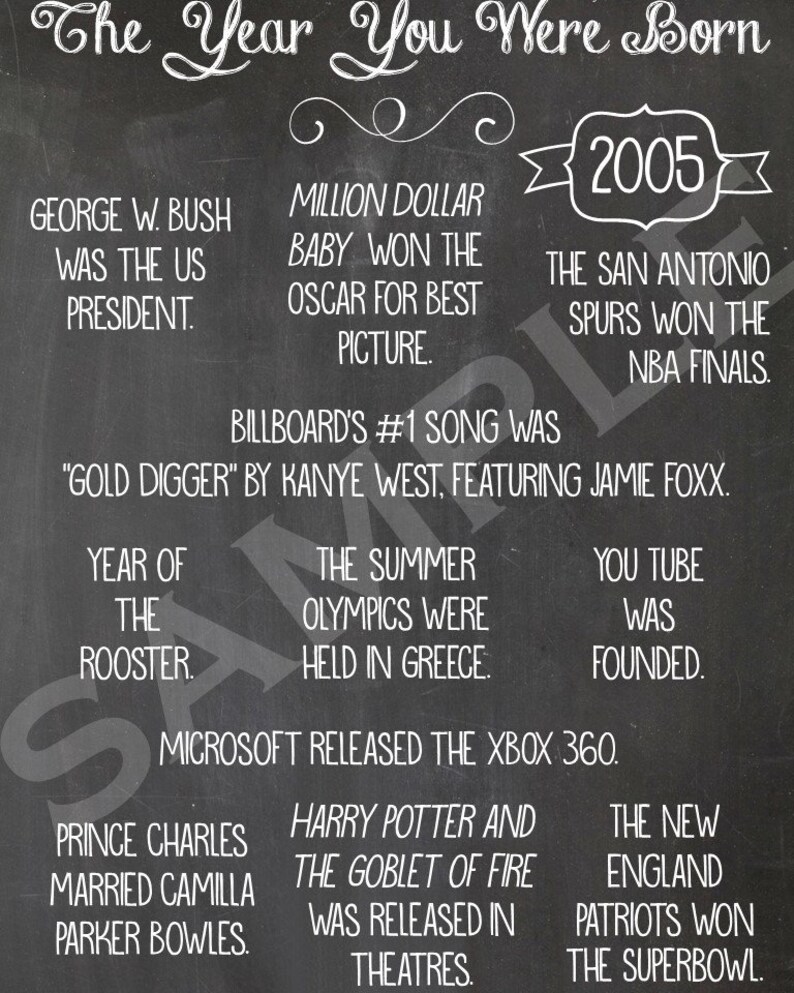 The Year You Were Born
2005
GEORGE W. BUSH
WAS THE US
PRESIDENT.
MILLION DOLLAR
BABY WON THE
OSCAR FOR BEST
PICTURE.
THE SAN ANTONIO
SPURS WON THE
NBA FINALS.
BILLBOARD'S #1 SONG WAS
"GOLD DIGGER" BY KANYE WEST, FEATURING JAMIE FOXX.
YEAR OF
THE
ROOSTER.
THE SUMMER
OLYMPICS WERE
HELD IN GREECE.
YOU TUBE
WAS
FOUNDED.
MICROSOFT RELEASED THE XBOX 360.
PRINCE CHARLES
MARRIED CAMILLA
PARKER BOWLES.
HARRY POTTER AND
THE GOBLET OF FIRE
WAS RELEASED IN
THEATRES.
THE NEW
ENGLAND
PATRIOTS WON
THE SUPERBOWL.
SAMPLE